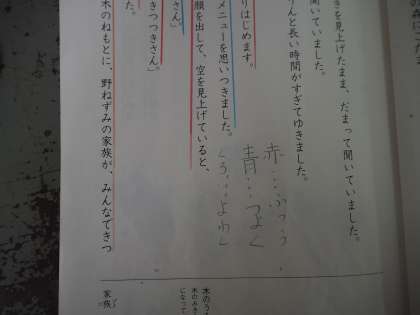 きを見上げたまま、だまって聞いていました。
聞いていました。
んと長い時間がすぎてゆきました。
赤…ふつう
青…つよく
くろ…よわく
りはじめます。
メニューを思いつきました。
顔を出して、空を見上げていると、
さん」
きつつきさん」。
た。
木のねもとに、野ねずみの家族が、みんなできつ
木のう
木のみき
になって
家族